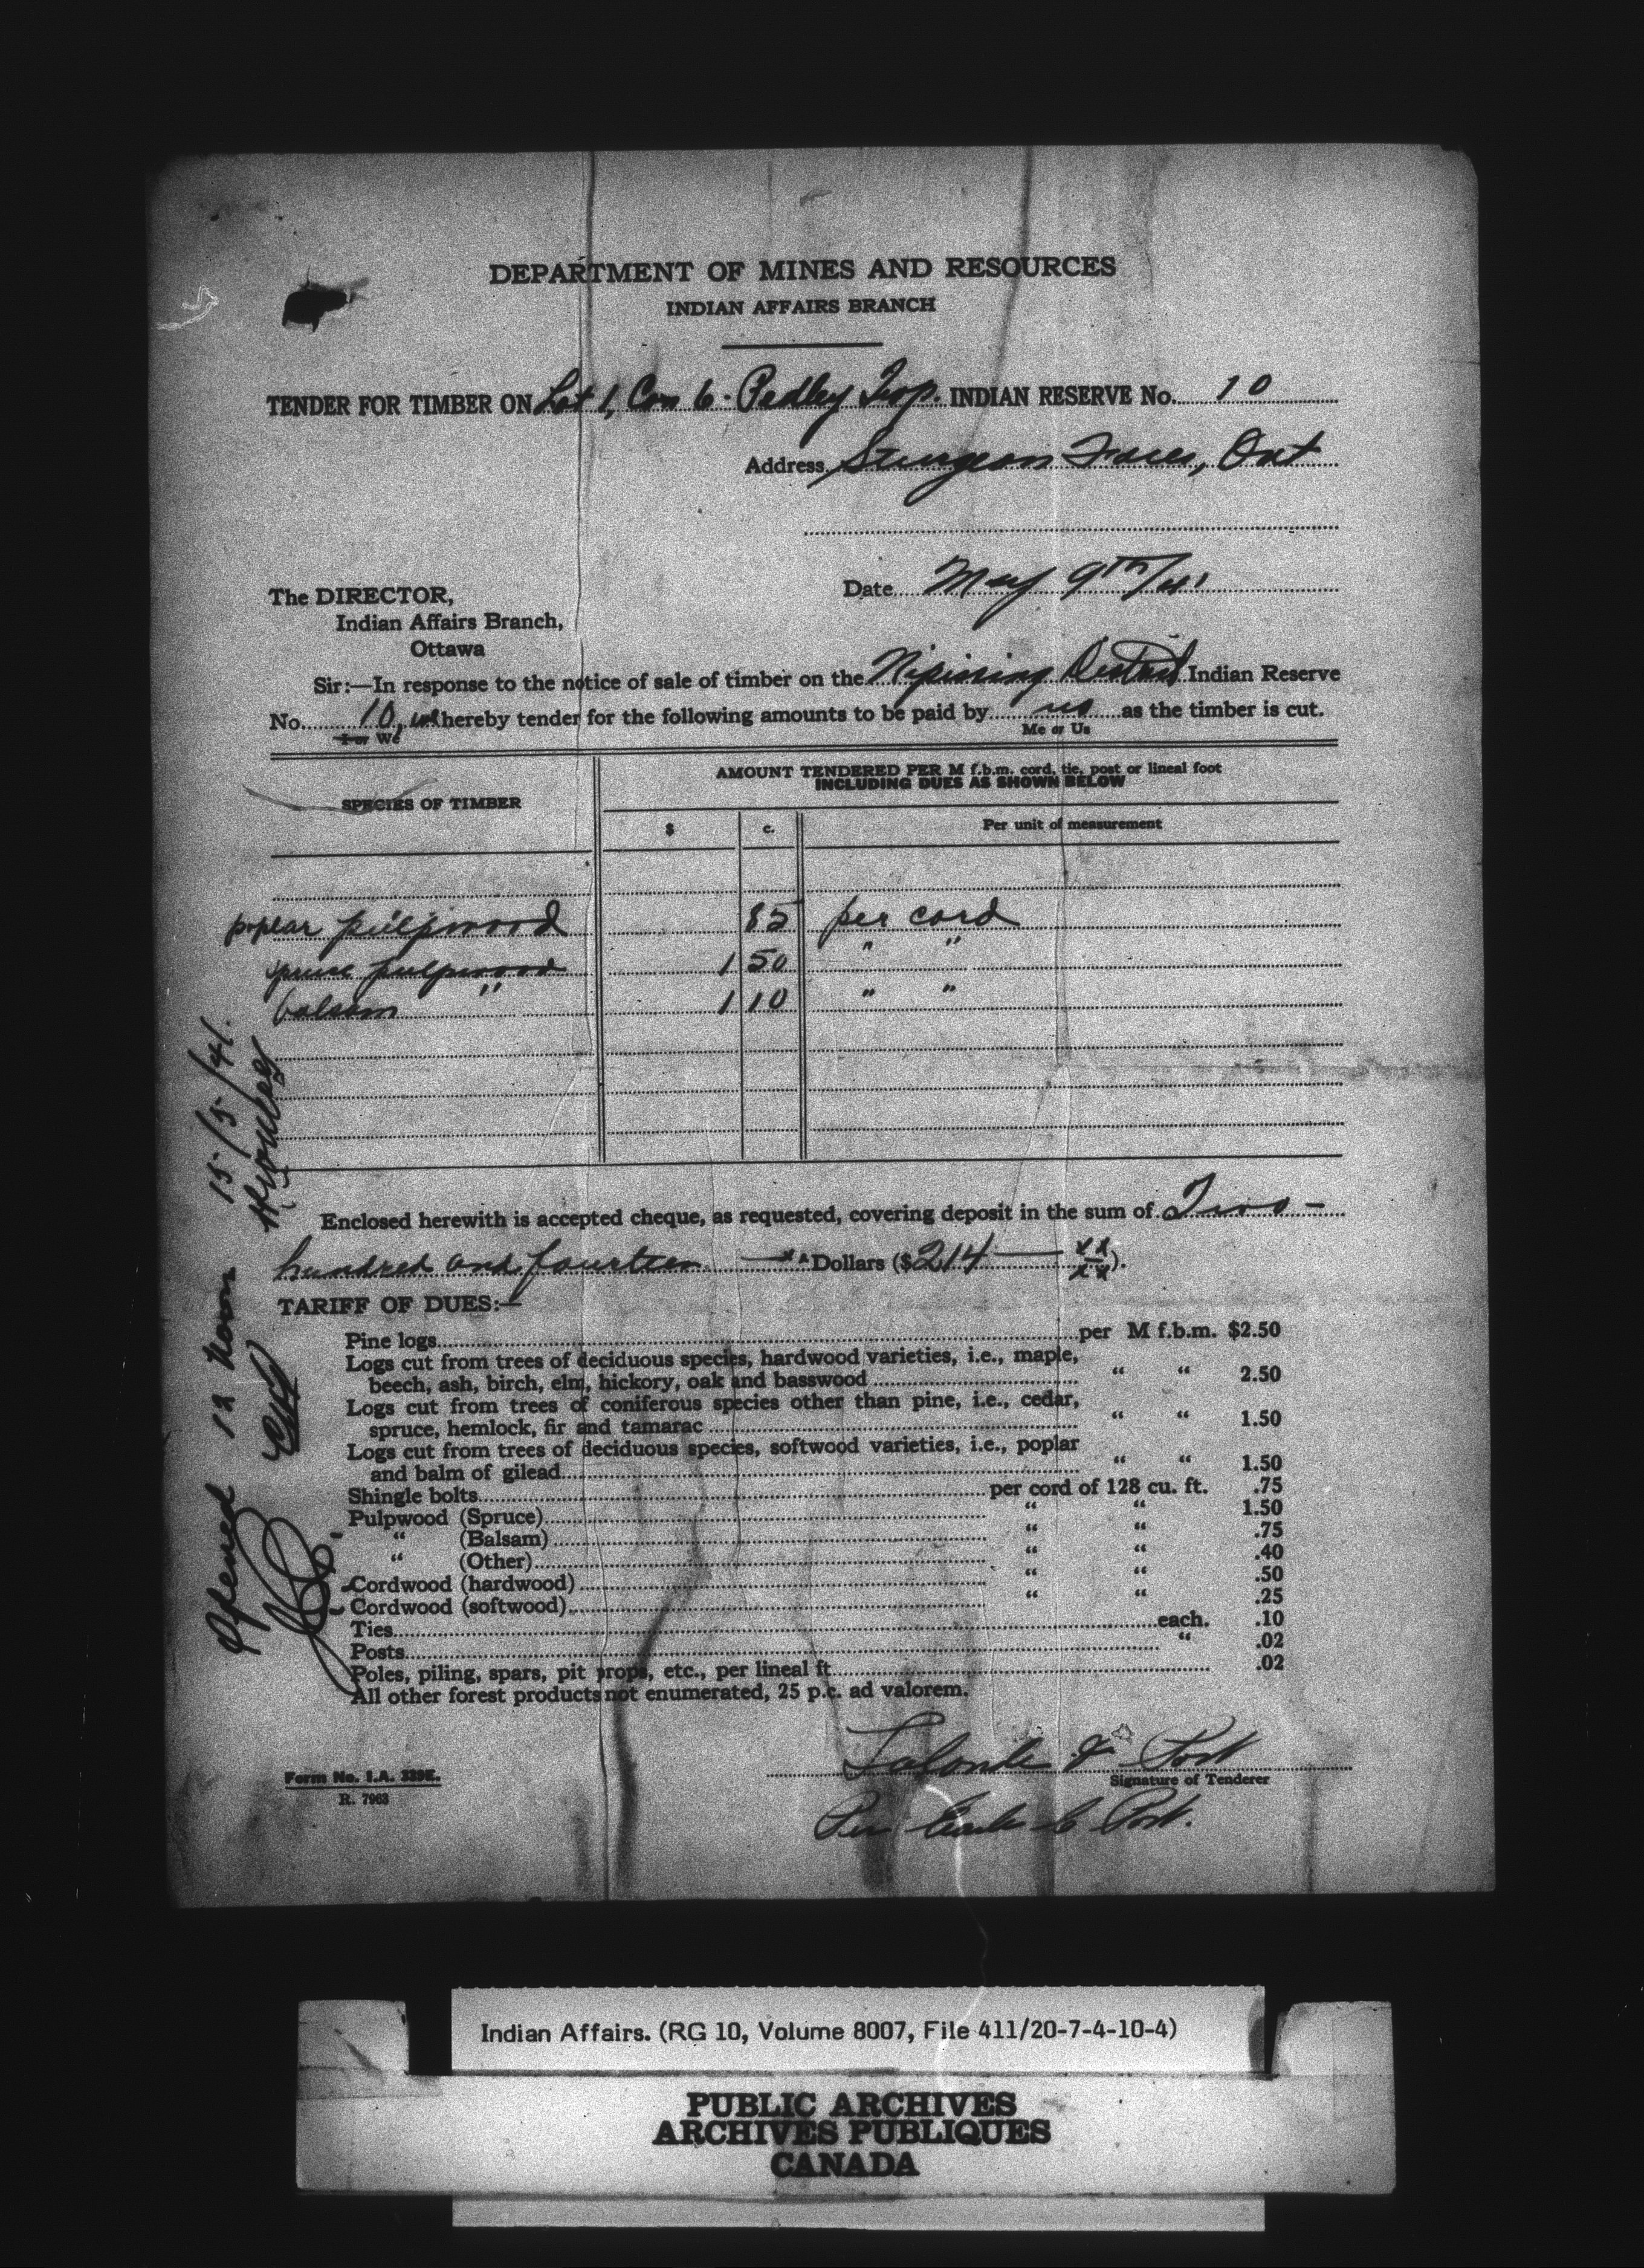 DEPARTMENT OF MINES AND RESOURCES
INDIAN AFFAIRS BRANCH
TENDER FOR TIMBER ON Lot 1, Con 6 - Pedley Twp. INDIAN RESERVE No. 10
Address Sturgeon Falls, Ont
Date May 9th/41
The DIRECTOR,
Indian Affairs Branch,
Ottawa
Sir:—In response to the notice of sale of timber on the Nipissing District Indian Reserve
No. 10, we hereby tender for the following amounts to be paid by us as the timber is cut.
I or We Me or Us
SPECIES OF TIMBER
AMOUNT TENDERED PER M f.b.m. cord, tie, post or lineal foot
INCLUDING DUES AS SHOWN BELOW
$ c. Per unit of measurement
poplar pulpwood 85 per cord
spruce pulpwood 1 50 " "
balsam " 1 10 " "
Enclosed herewith is accepted cheque, as requested, covering deposit in the sum of Two -
hundred and fourteen — xx Dollars ($214 — xx/xx).
TARIFF OF DUES:—
Pine logs per M f.b.m. $2.50
Logs cut from trees of deciduous species, hardwood varieties, i.e., maple,
beech, ash, birch, elm, hickory, oak and basswood " " 2.50
Logs cut from trees of coniferous species other than pine, i.e., cedar,
spruce, hemlock, fir and tamarac " " 1.50
Logs cut from trees of deciduous species, softwood varieties, i.e., poplar
and balm of gilead " " 1.50
Shingle bolts per cord of 128 cu. ft. .75
Pulpwood (Spruce) " " 1.50
" (Balsam) " " .75
" (Other) " " .40
Cordwood (hardwood) " " .50
Cordwood (softwood) " " .25
Ties each. .10
Posts " .02
Poles, piling, spars, pit props, etc., per lineal ft. .02
All other forest products not enumerated, 25 p.c. ad valorem.
Lalonde & Post
Signature of Tenderer
Per C Post.
Form No. I.A. 339E.
R. 7963
Opened 12 Noon 15/5/41.
Indian Affairs. (RG 10, Volume 8007, File 411/20-7-4-10-4)
PUBLIC ARCHIVES
ARCHIVES PUBLIQUES
CANADA